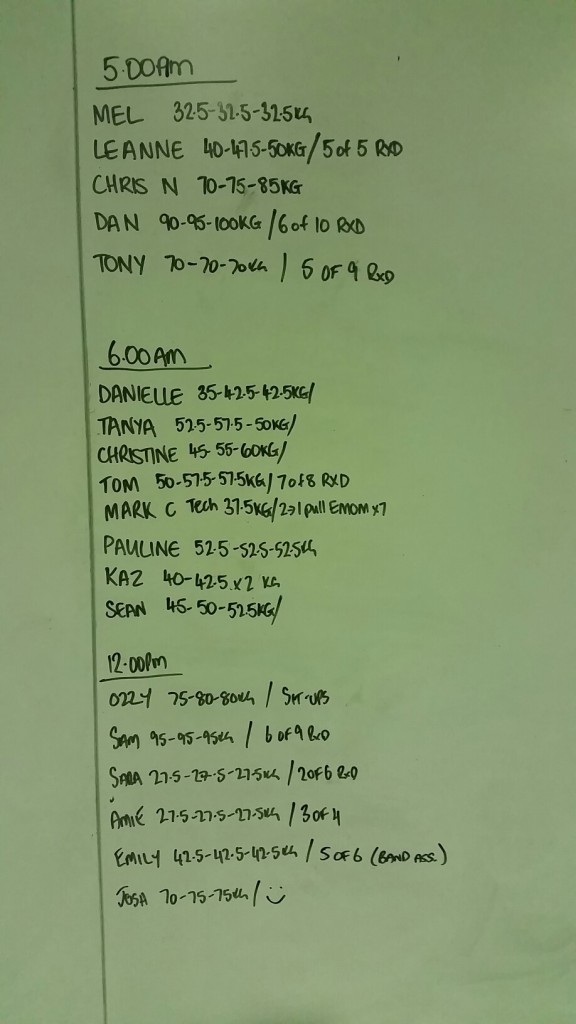 5.00Am
MEL 32.5-32.5-32.5KG
LEANNE 40-47.5-50KG/5 of 5 RXD
CHRIS N 70-75-85KG
DAN 90-95-100KG/6 of 10 RXD
TONY 70-70-70KG / 5 OF 9 RXD
6.00AM
DANIELLE 35-42.5-42.5KG/
TANYA 52.5-57.5-50KG/
CHRISTINE 45-55-60KG/
TOM 50-57.5-57.5KG/7 of 8 RXD
MARK C Tech 37.5KG/2→1 pull EMOM x7
PAULINE 52.5-52.5-52.5KG
KAZ 40-42.5 x 2 KG
SEAN 45-50-52.5KG/
12.00Pm
OZZY 75-80-80KG / SIT-UPS
SAM 95-95-95KG / 6 OF 9 RXD
SARA 27.5-27.5-27.5KG / 2 OF 6 RXD
AMIE 27.5-27.5-27.5KG / 3 OF 4
EMILY 42.5-42.5-42.5KG / 5 OF 6 (BAND ASS.)
JOSA 70-75-75KG / :)